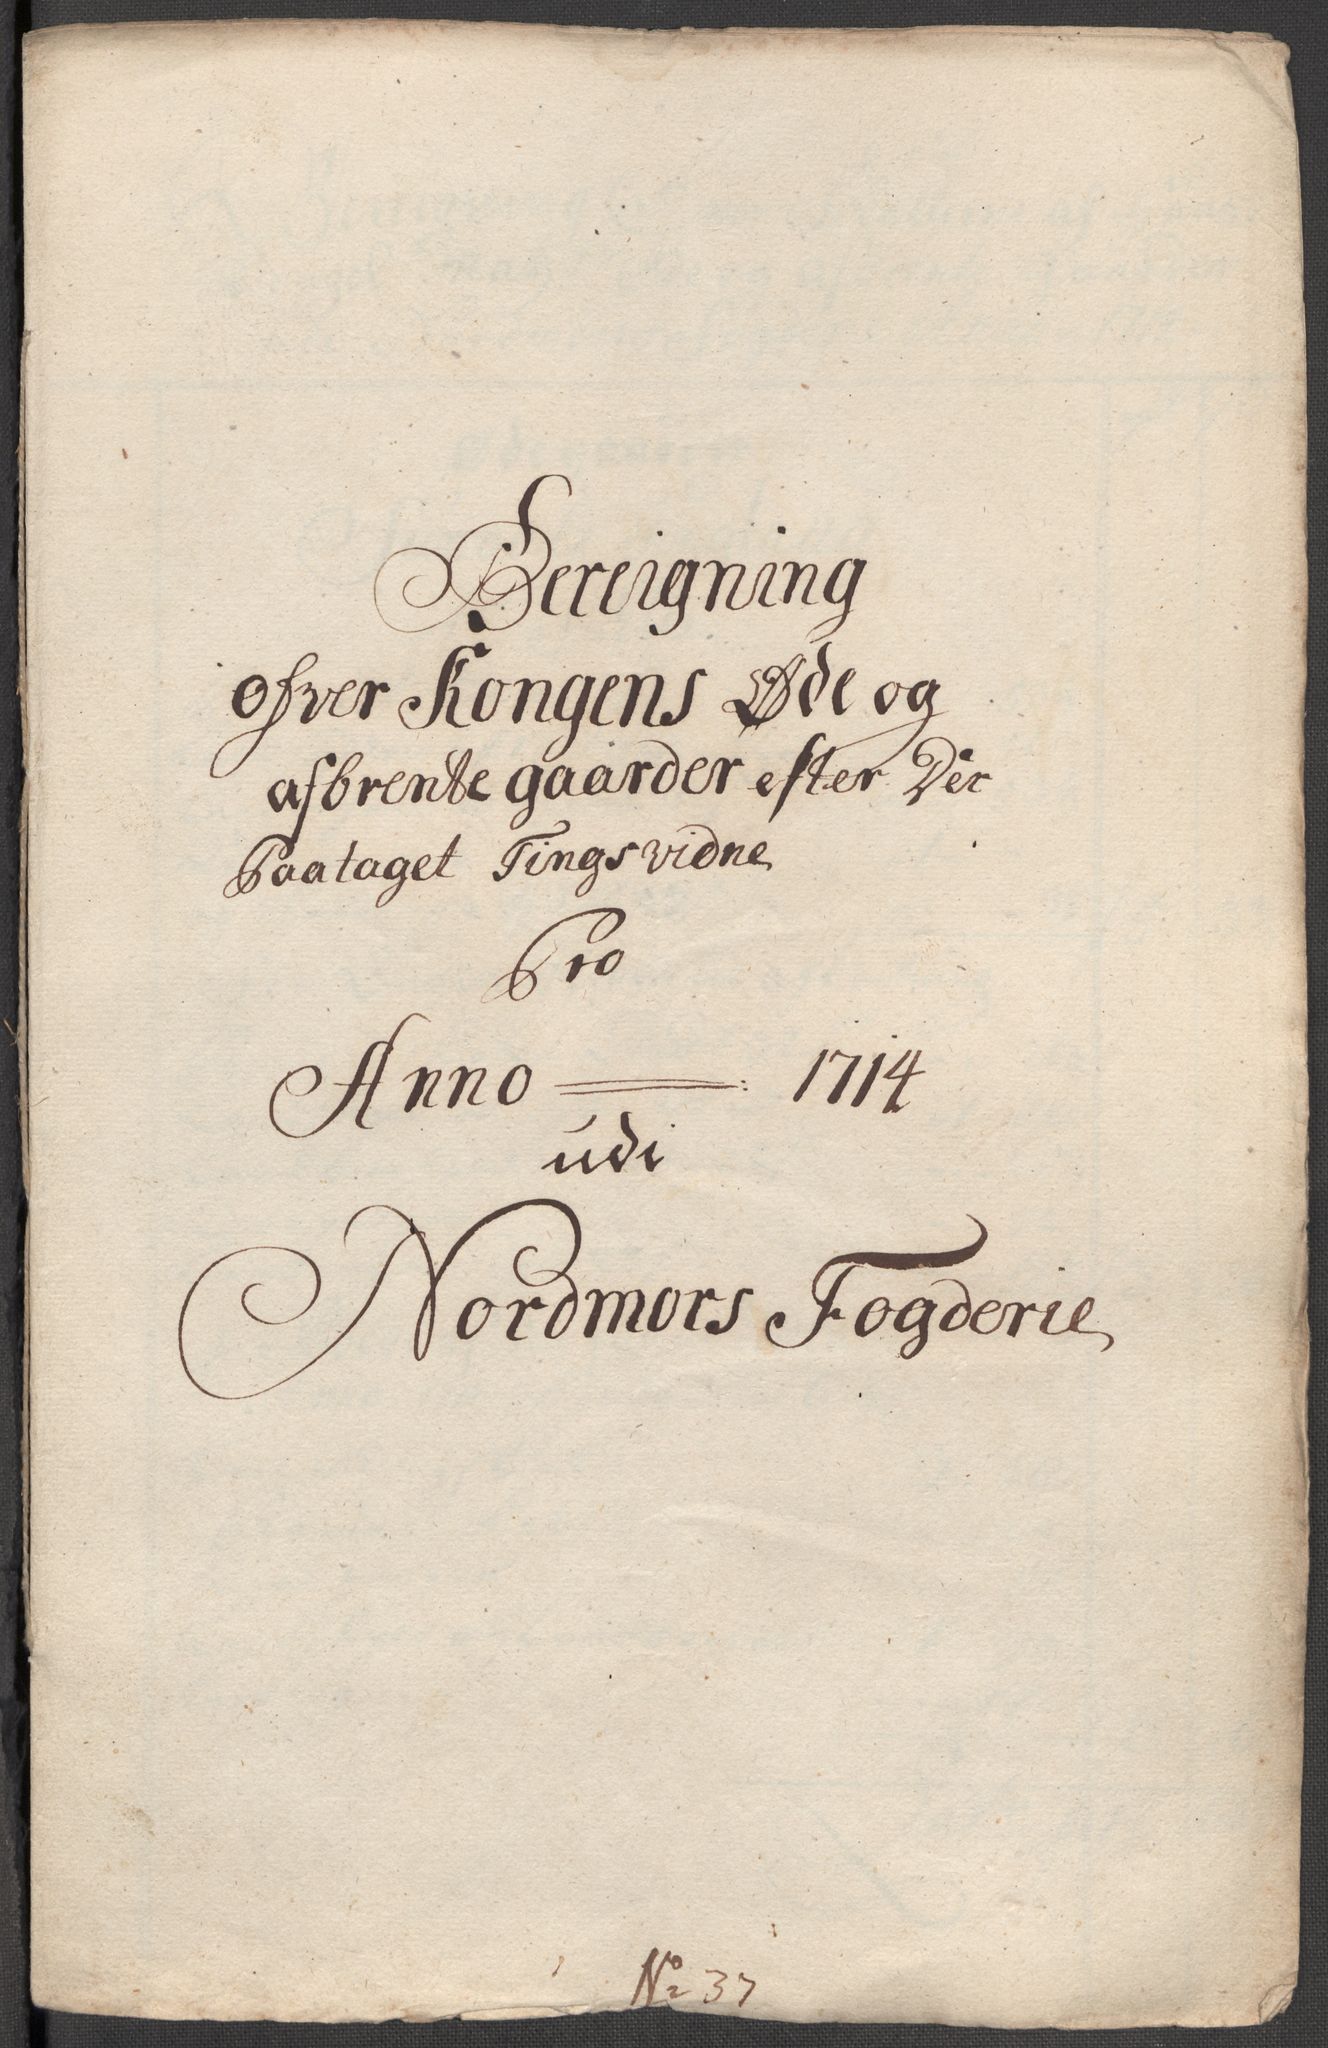 Bereigning
ofver Kongens Øde og
afbrente gaarder efter Der
Paataget Tingsvidne
Pro
Anno 1714
udi
Nordmors Fogderie
No 37